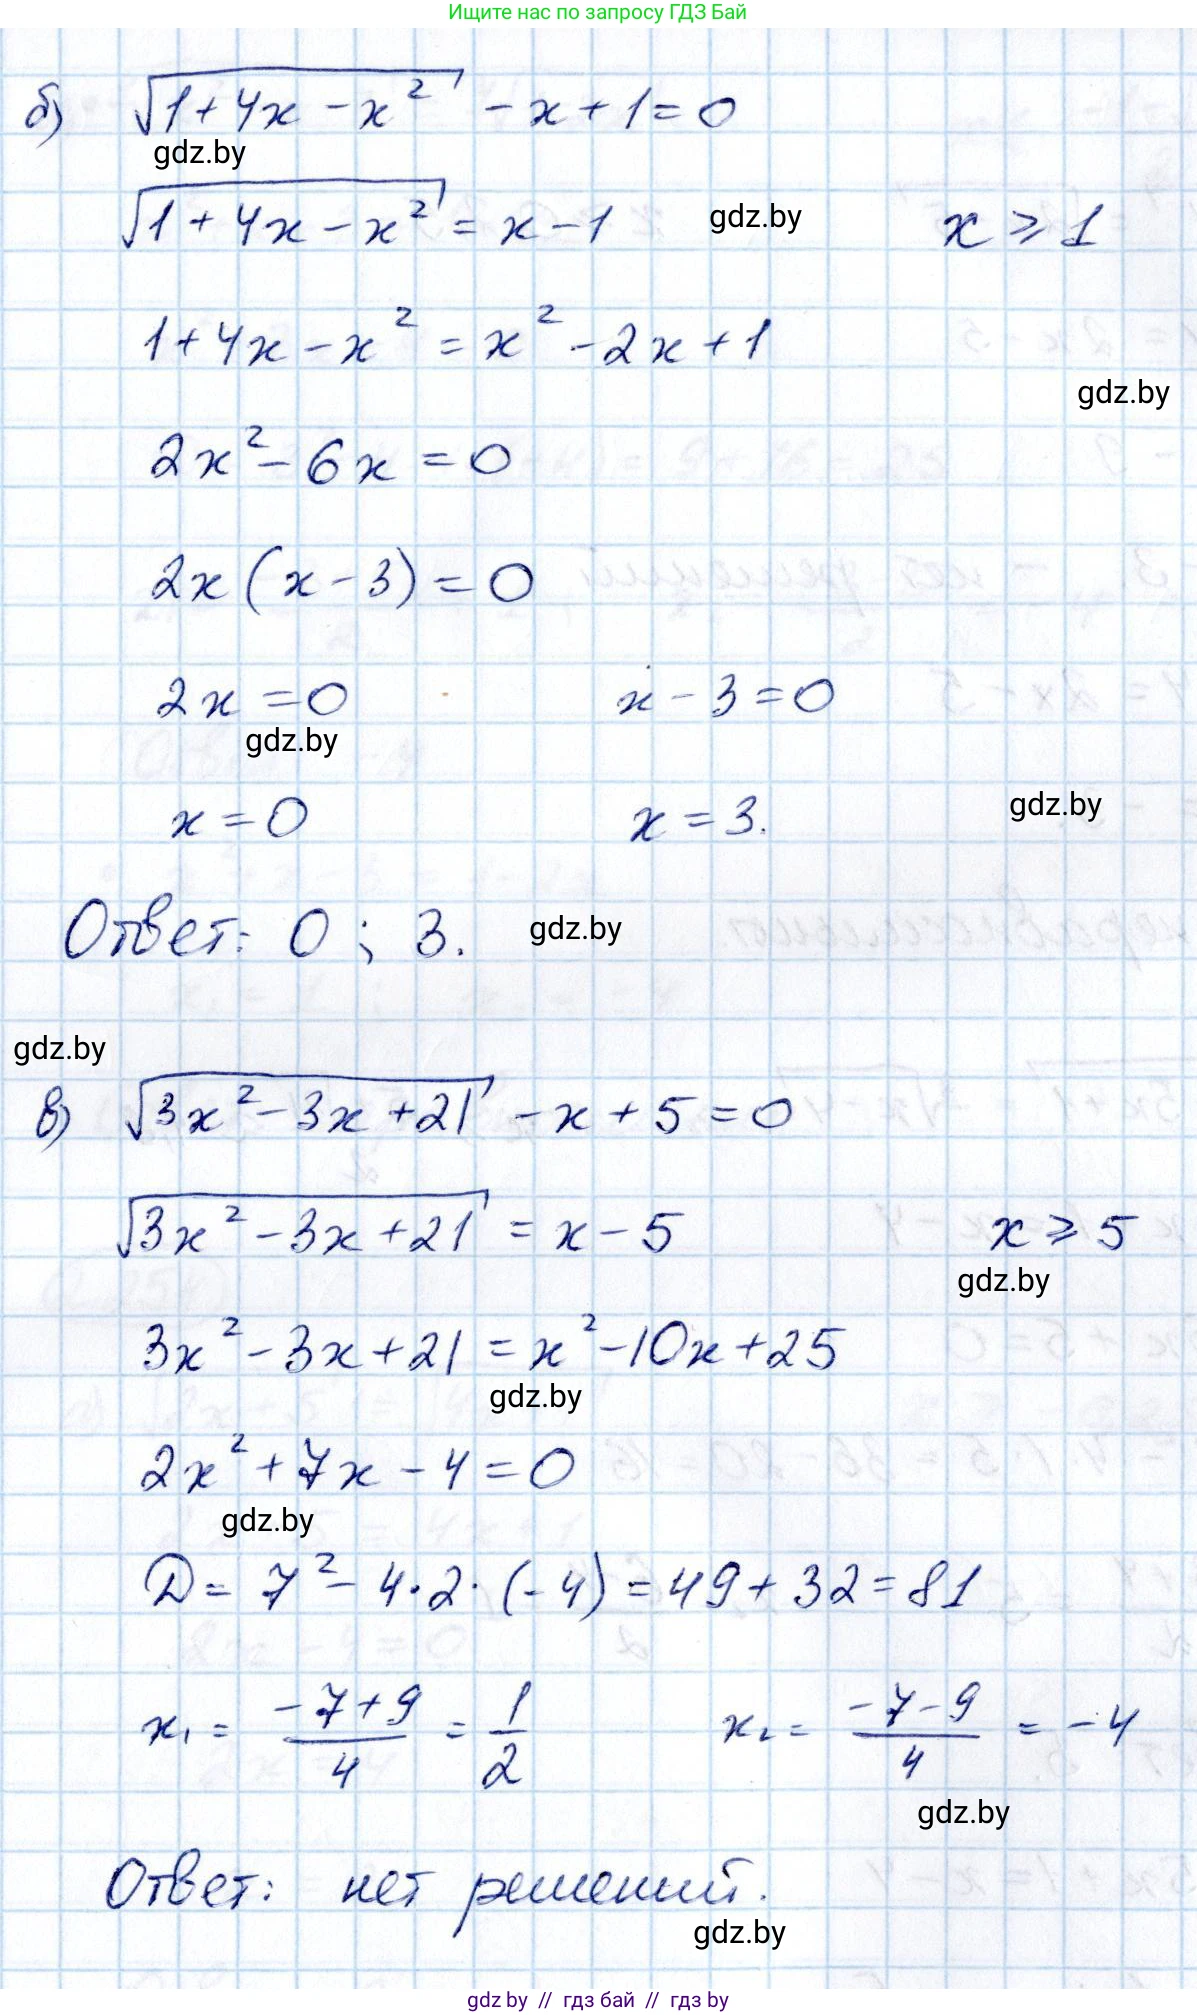 Ищите нас по запросу ГДЗ Бай
б) √(1+4x-x²) - x + 1 = 0
gdz.by
√(1+4x-x²) = x-1 gdz.by x ⩾ 1
1+4x-x² = x²-2x+1
gdz.by
2x²-6x=0
2x(x-3)=0
2x=0 x-3=0
gdz.by
x=0 x=3. gdz.by
Ответ: 0; 3. gdz.by
gdz.by
в) √(3x²-3x+21) - x + 5 = 0
√(3x²-3x+21) = x-5 x ⩾ 5
gdz.by
3x²-3x+21 = x²-10x+25
gdz.by
2x²+7x-4=0
gdz.by
D = 7²-4·2·(-4) = 49+32 = 81
x₁ = (-7+9)/4 = 1/2 x₂ = (-7-9)/4 = -4
gdz.by
Ответ: нет решений.
gdz.by
gdz by // гдз бай // гдз by